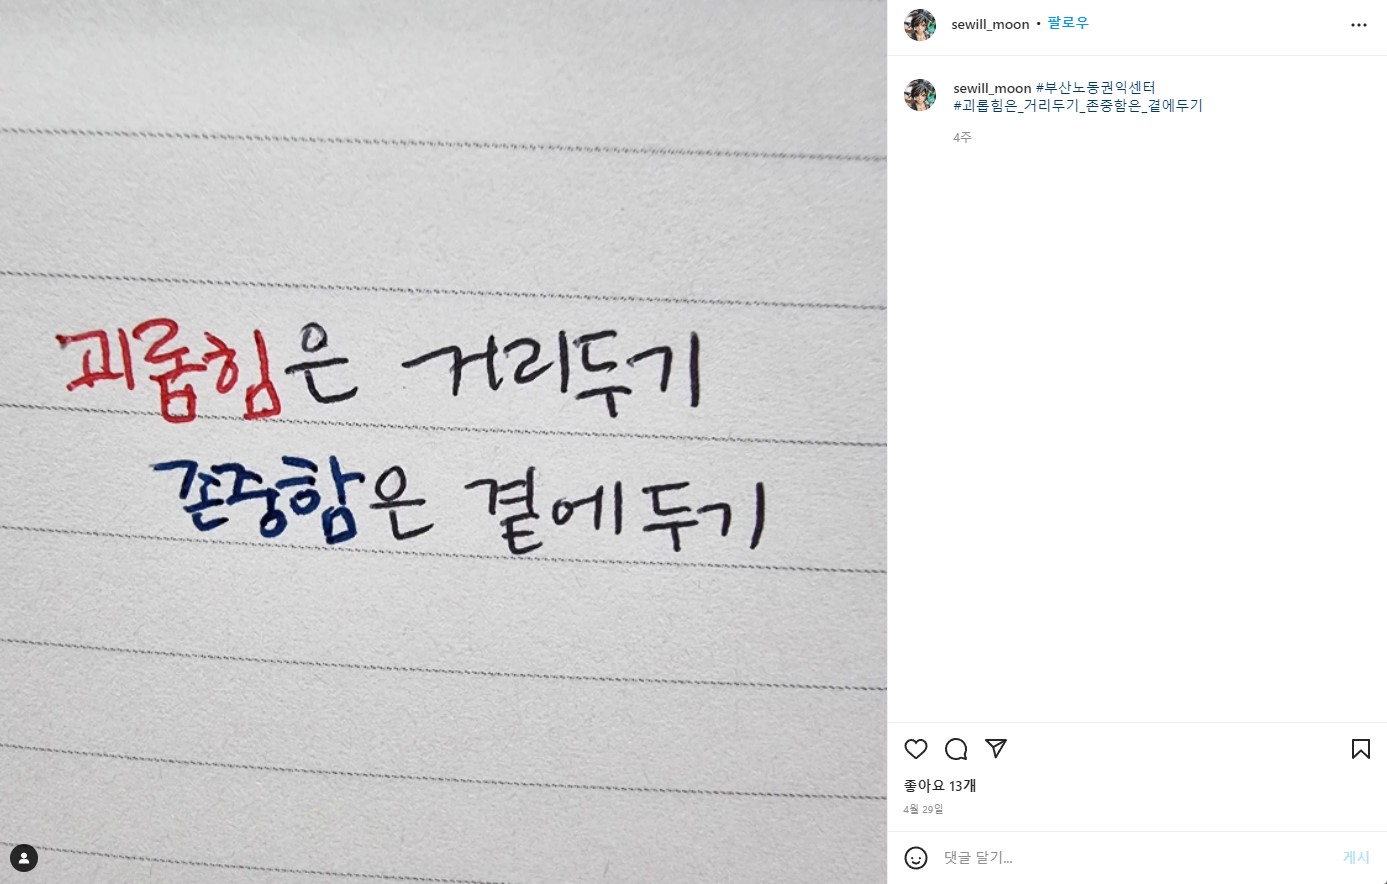 괴롭힘은 거리두기
존중함은 곁에두기
sewill_moon • 팔로우
sewill_moon #부산노동권익센터
#괴롭힘은_거리두기_존중함은_곁에두기
4주
좋아요 13개
4월 29일
댓글 달기...
게시